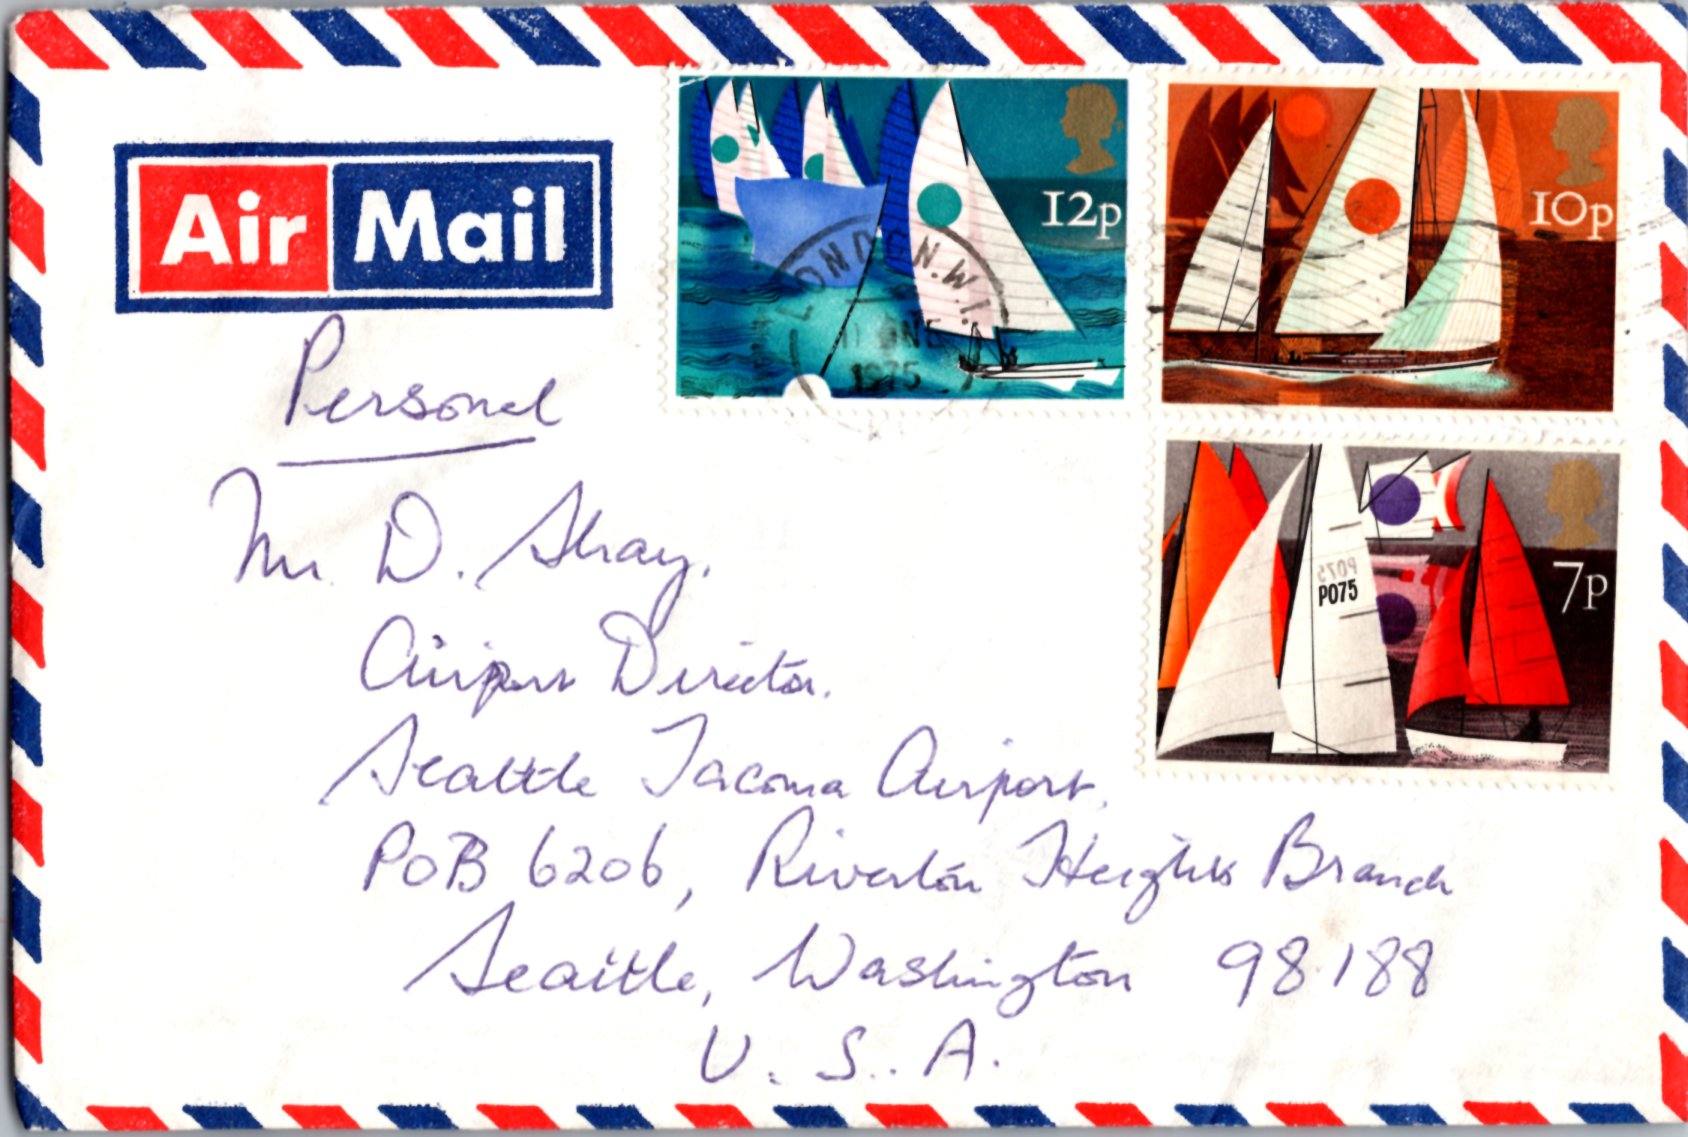 Air Mail
12p
10p
LONDON N.W.1.
11 JNE
1975
7p
P075
P075
Personal
Mr. D. Shay,
Airport Director.
Seattle Tacoma Airport,
POB 6206, Riverton Heights Branch
Seattle, Washington 98188
U.S.A.